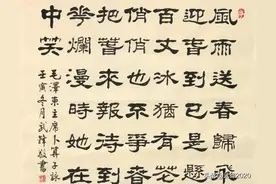 風雨送春歸飛
迎旾到已是懸
百丈冰猶有花
俏俏也不爭春
把旾來報待到
花爛漫時她在
中笑
毛澤東主席卜算子詠
壬寅冬月武陣書
2020